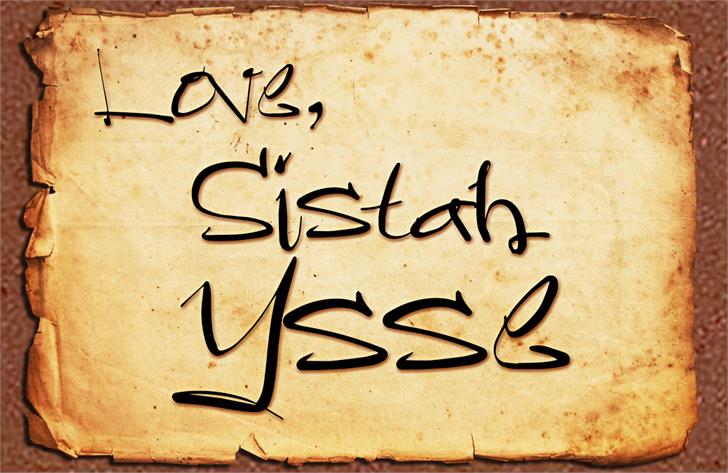 Love,
Sistah
Ysse